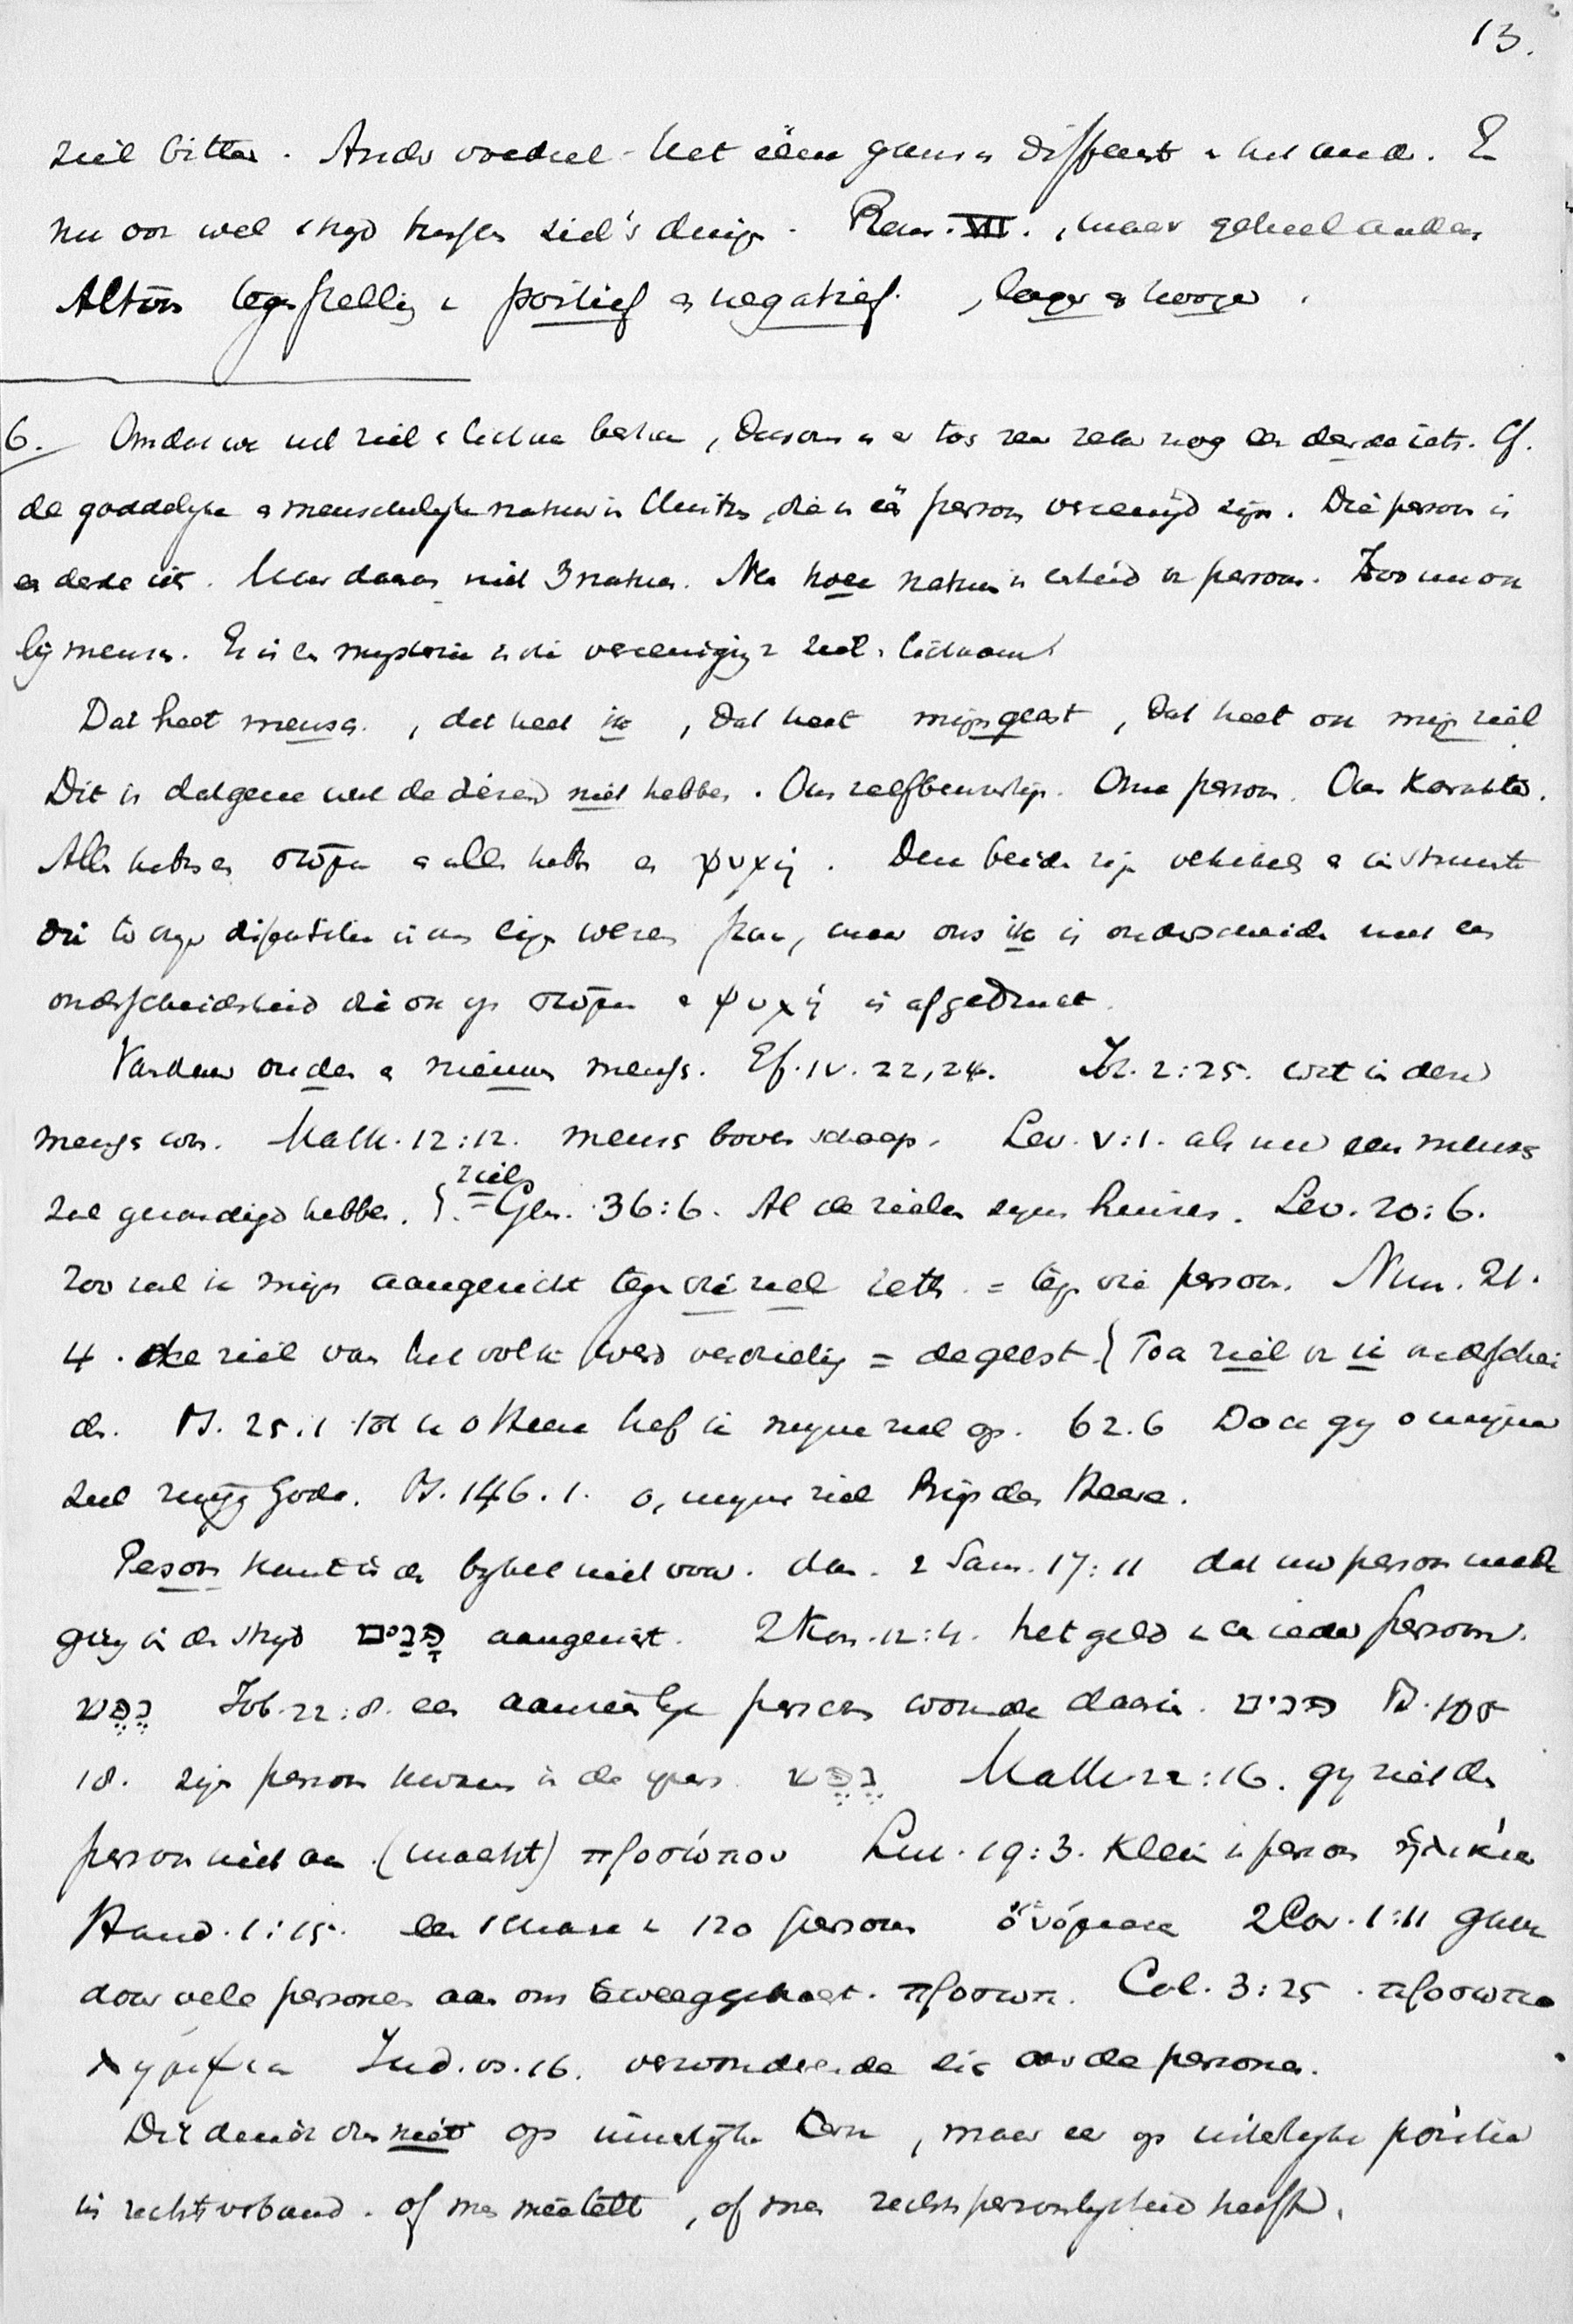 13.
ziel bitter. Ander voedsel - het één gansch different v het ander. En
nu ook wel strijd tusschen ziel's dingen. Rom. VII., maar geheel anders
Altoos tegenstelling v positief en negatief. , lager en hooger.
6. Omdat we uit ziel en lichaam bestaan, daarom is er toch zeer zeker nog een derde iets. Cf.
de goddelijke en menschelijke natuur in Christus, die in één persoon vereenigd zijn. Die persoon is
een derde iets. Maar daarom niet 3 naturen. Maar twee naturen in eenheid v persoon. Zoo nu ook
bij mensch. Er is een mysterie in die vereeniging v ziel en lichaam
Dat heet mensch., dat heet ik, dat heet mijn geest, dat heet ook mijn ziel
Dit is datgene wat de dieren niet hebben. Ons zelfbewustzijn. Onze persoon. Ons karakter.
Allen hebben een σῶμα en allen hebben een ψυχή. Deze beide zijn vehikel en instrument
die to onzer dispositie in ons eigen wezen staan, maar ons ik is onderscheiden met een
onderscheidenheid die ook op σῶμα en ψυχή is afgedrukt.
Vandaar ouden en nieuwen mensch. Ef. IV. 22, 24. Joh. 2:25. wat in den
mensch was. Matth. 12:12. mensch boven schaap. Lev. V:1. als nu een mensch
ziel
zal gezondigd hebben. }. = Gen. 36:6. Al de zielen zijns huizes. Lev. 20:6.
zoo zal ik mijn aangezicht tegen die ziel zetten = tegen die persoon. Num. 21.
4. de ziel van het volk werd verdrietig = de geest { Toch ziel v ik onderschei
den. Ps. 25.1 tot U o Heere hef ik mijne ziel op. 62.6 Doch gij o mijne
ziel zwijg Gode. Ps. 146.1. o, mijne ziel Prijs den Heere.
Persoon komt in den bijbel niet voor. dan. 2 Sam. 17:11 dat uw persoon mede
ging in den strijd פָּנִים aangezicht. 2 Kon. 12:4. het geld v een ieder persoon.
נֶפֶשׁ Job. 22:8. een aanzienlijk persoon woonde daarin. פנים Ps. 105
18. zijn persoon kwam in de ijzers. נֶפֶשׁ Matth. 22:16. gij ziet den
persoon niet aan (macht) προσώπου Luc. 19:3. Klein v persoon ἡλικία
Hand. 1:15. een schare v 120 personen ὀνόματα 2 Cor. 1:11 gave
door vele personen aan ons teweeggebracht. προσωπ. Col. 3:25. προσωπο
λημψια Jud. vs. 16. verwonderende zich over de personen.
Dit duidt dus niet op innerlijke kern, maar er op uiterlijke positie
in rechtsverband. of men meetelt, of men rechtspersoonlijkheid heeft.